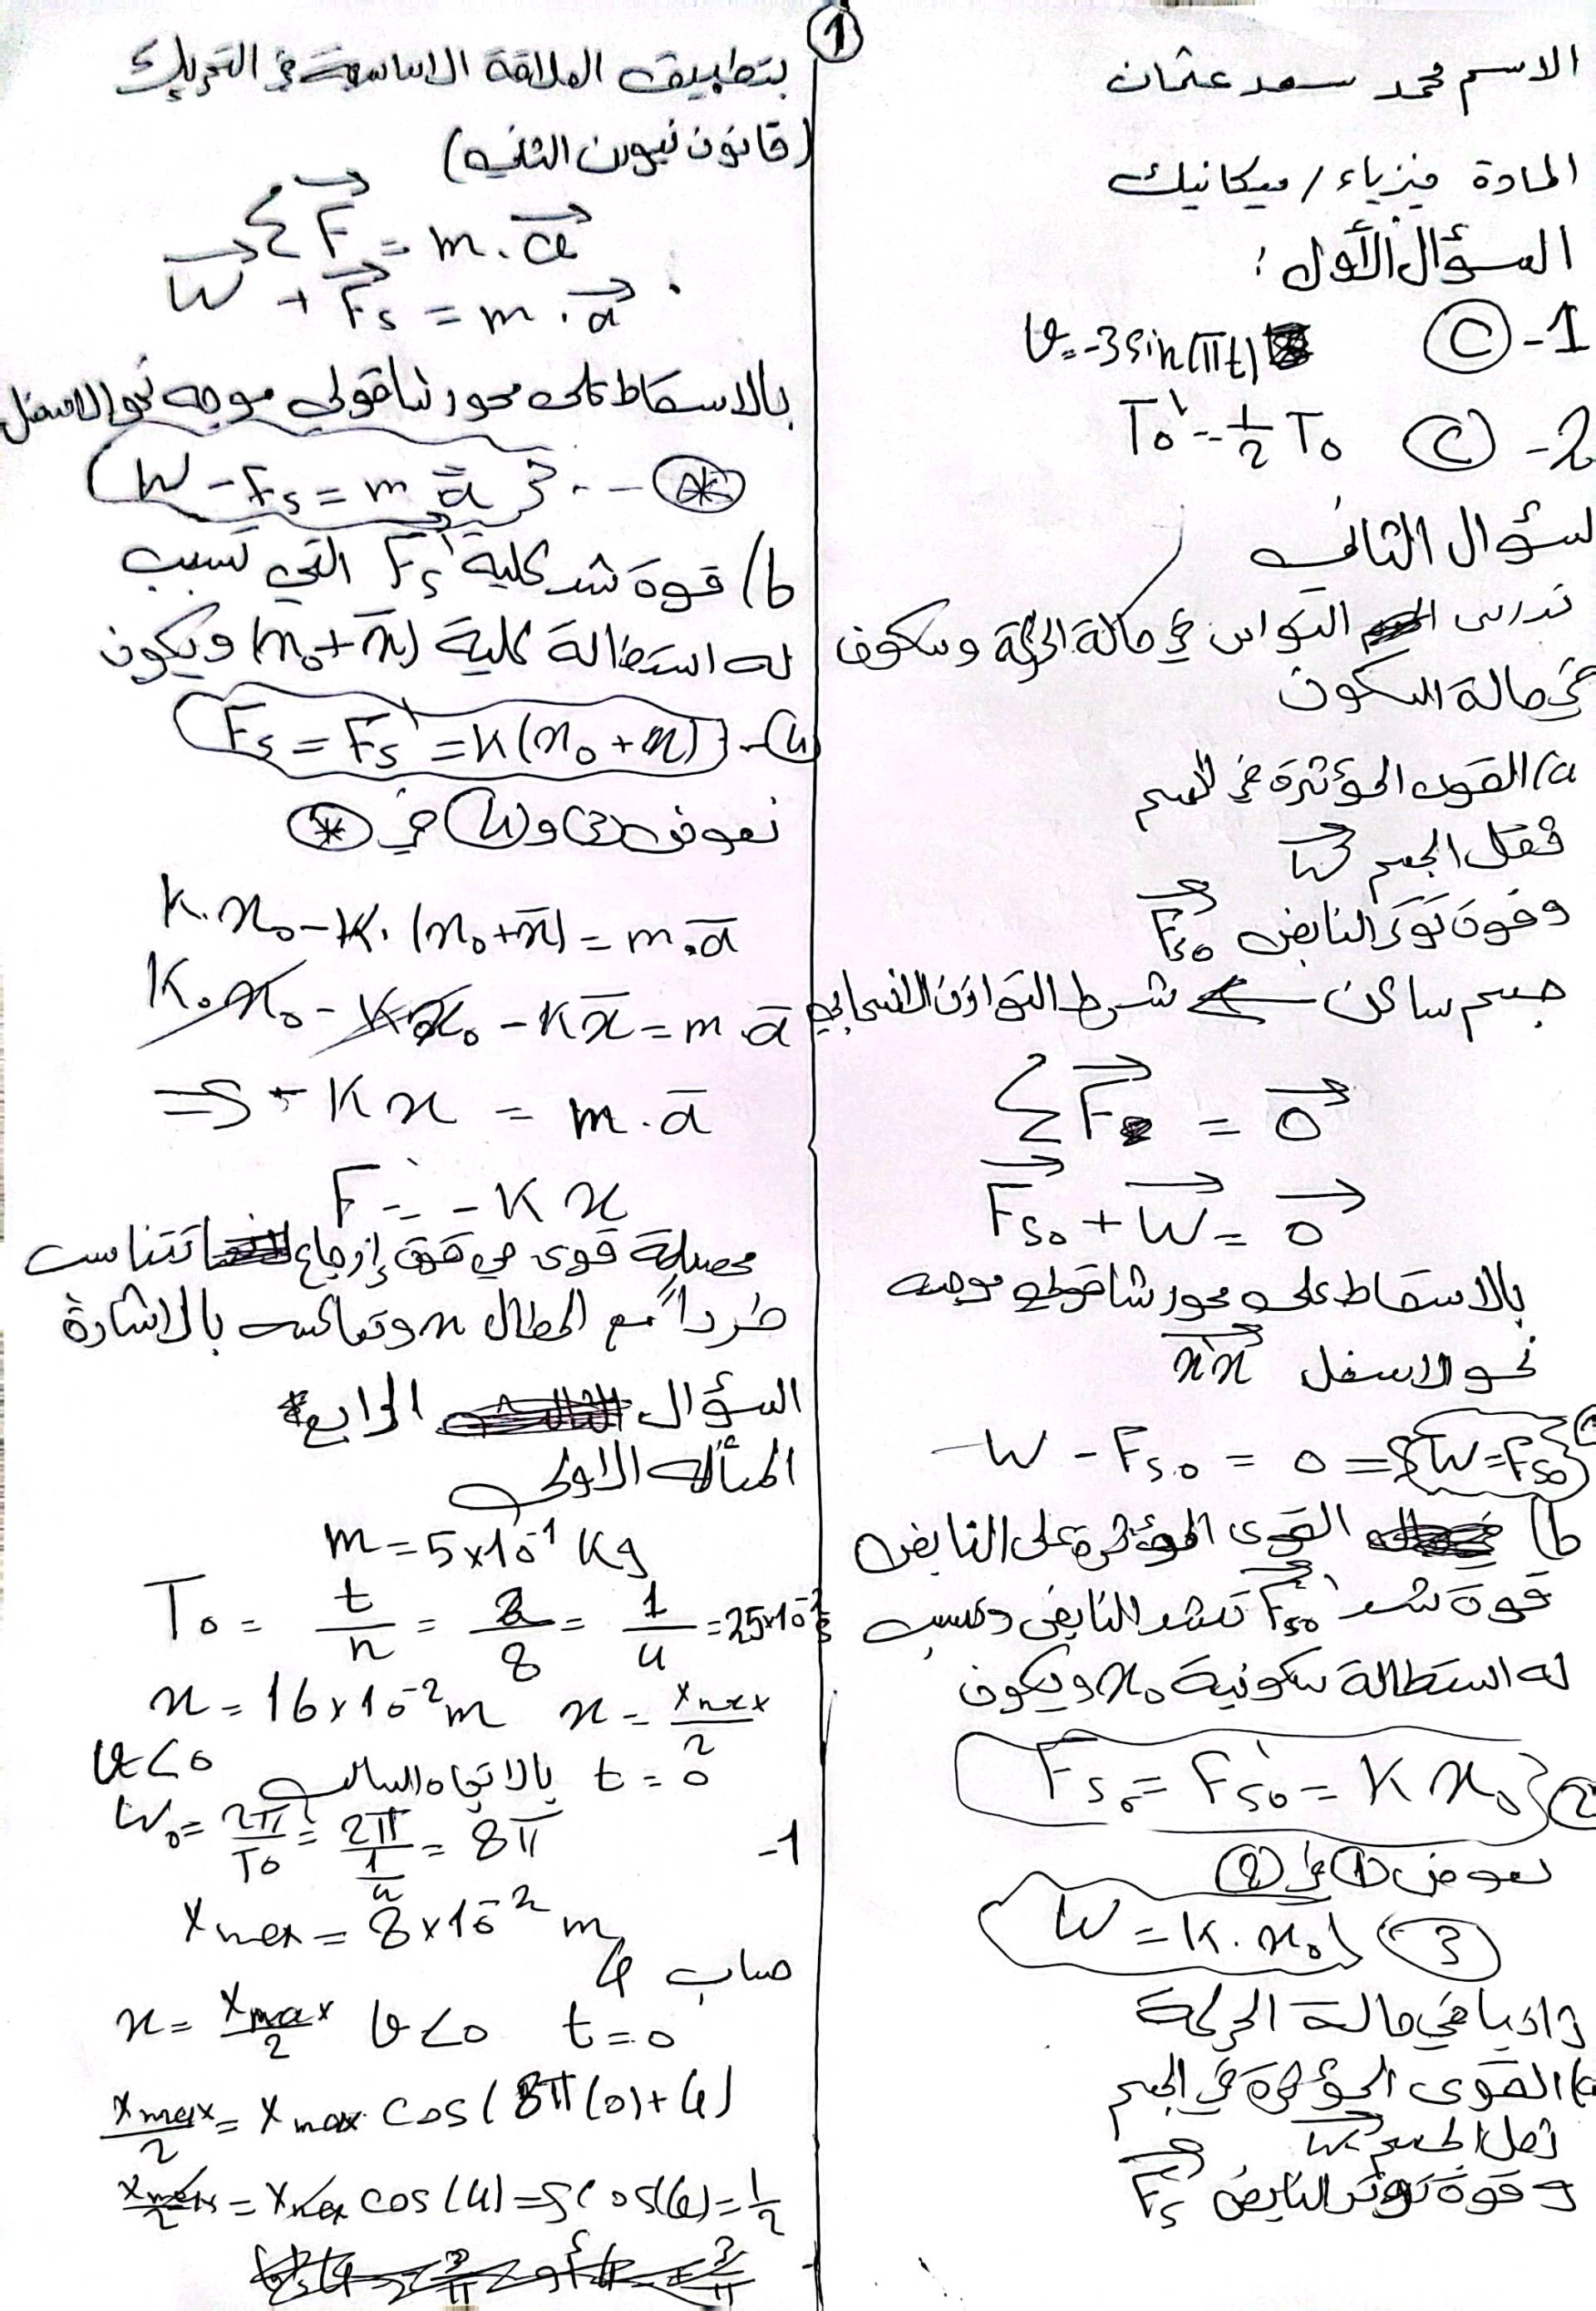 1
الاسم محمد سعد عثمان
المادة فيزياء / ميكانيك
السؤال الأول :
1- C v = -3 sin(πt)
2- C T₀' = 1/2 T₀
لسؤال الثاني
ندرس النواس في حالة الحركة وسكون
في حالة السكون
a) القوى المؤثرة في الجسم
ثقل الجسم W⃗
وقوة توتر النابض F⃗s₀
جسم ساكن ⇐ شرط التوازن الانسحابي
Σ F⃗ = 0⃗
F⃗s₀ + W⃗ = 0⃗
بالاسقاط على محور شاقولي موجه
نحو الاسفل x'x⃗
W - Fs₀ = 0 ⇒ W = Fs₀ 1
b) القوى المؤثرة على النابض
قوة شد F⃗s₀' تشد النابض وتسبب
له استطالة سكونية x₀ ويكون
Fs₀ = Fs₀' = K x₀ 2
نعوض 1 في 2
W = K . x₀ 3
ثانيا في حالة الحركة
a) القوى المؤثرة في الجسم
ثقل الجسم W⃗
وقوة توتر النابض F⃗s
بتطبيق العلاقة الاساسية في التحريك
(قانون نيوتن الثاني)
Σ F⃗ = m . a⃗
W⃗ + F⃗s = m . a⃗
بالاسقاط على محور شاقولي موجه نحو الاسفل
W - Fs = m a̅ ... *
b) قوة شد كلية Fs' التي تسبب
له استطالة كلية (x₀ + x̅) ويكون
Fs = Fs' = K (x₀ + x) - 4
نعوض 3 و 4 في *
K . x₀ - K . (x₀ + x̅) = m . a̅
K . x₀ - K x₀ - K x̅ = m . a̅
⇒ - K x = m . a̅
F = - K x
محصلة قوى هي قوة إرجاع تتناسب
طرداً مع المطال x وتعاكسه بالاشارة
السؤال الرابع
المسألة الاولى
m = 5×10⁻¹ Kg
T₀ = t/n = 2/8 = 1/4 = 25×10⁻² s
x = 16×10⁻² m x = Xmax/2
t = 0 بالاتجاه السالب v < 0
1- ω₀ = 2π/T₀ = 2π/(1/4) = 8π
Xmax = 8×10⁻² m
حساب φ
x = Xmax/2 v < 0 t = 0
Xmax/2 = Xmax cos(8π(0) + φ)
Xmax/2 = Xmax cos(φ) ⇒ cos(φ) = 1/2